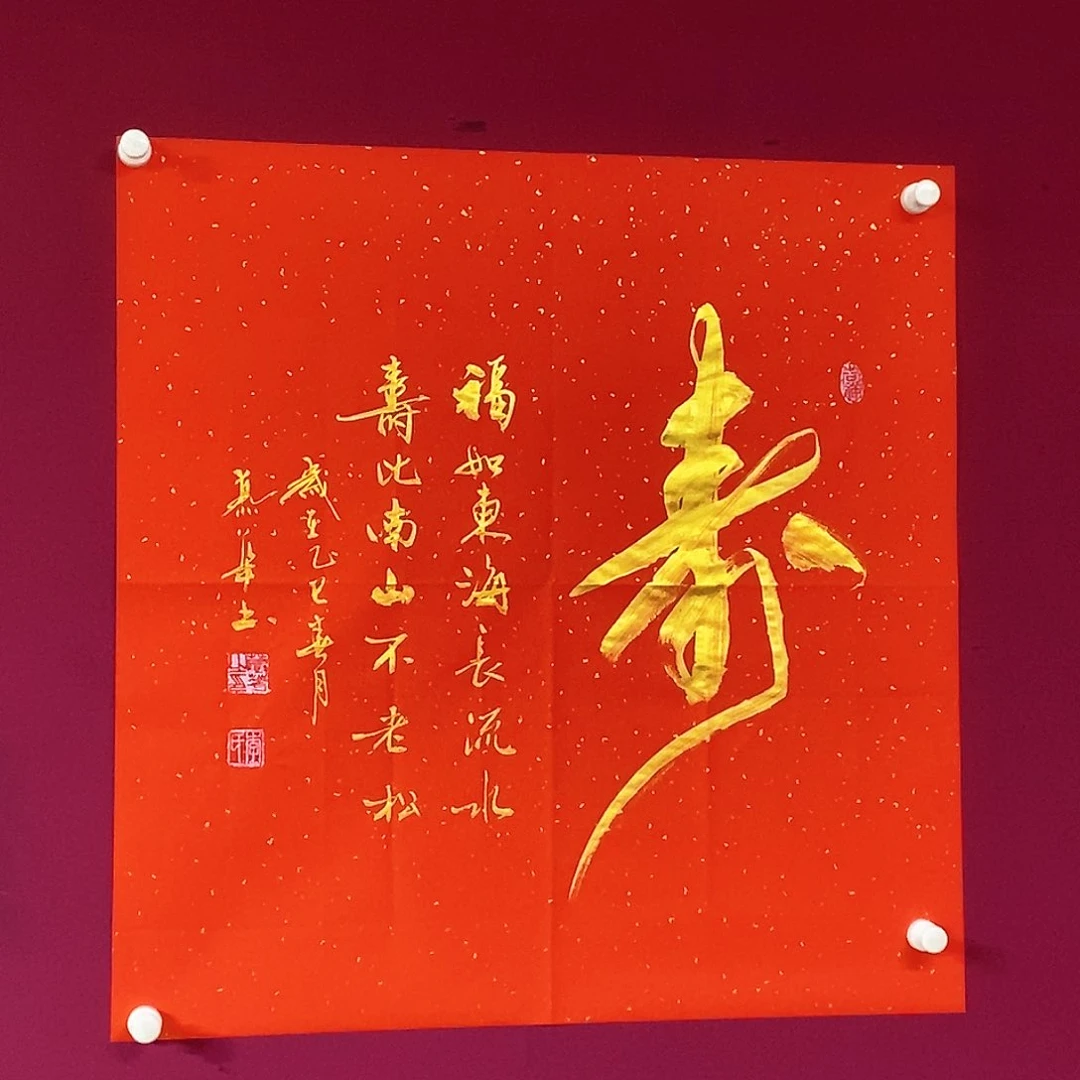 寿
福如東海長流水
壽比南山不老松
歲在乙巳春月